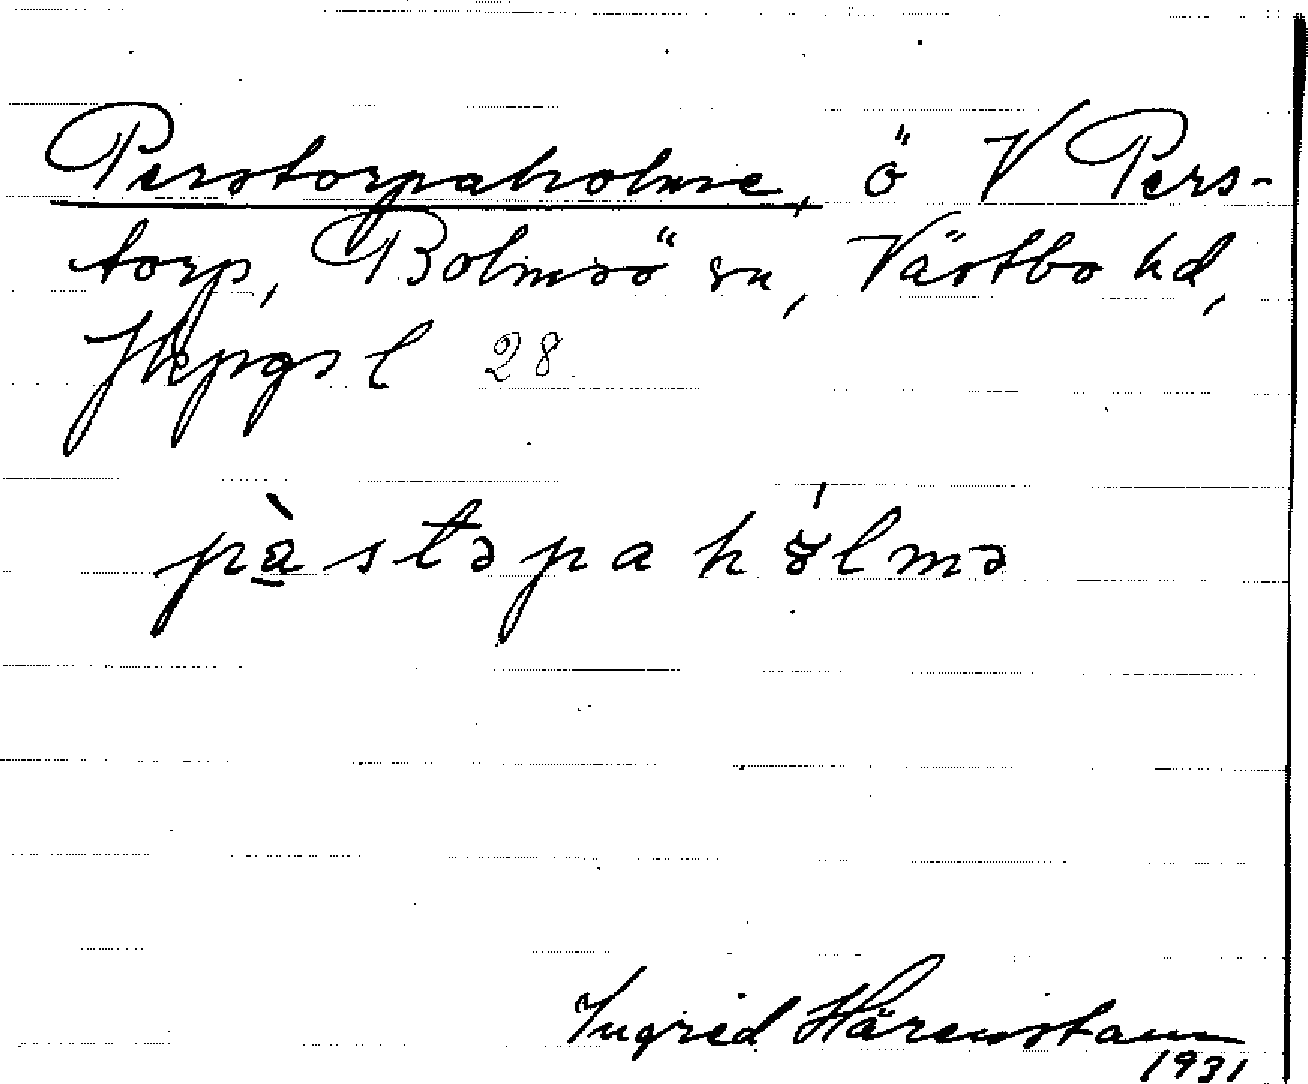 Perstorpaholme, ö V Pers-
torp, Bolmsö sn, Västbo hd,
Jkpgs l 28
pàstəpahólmə
Ingrid Härenstam
1931